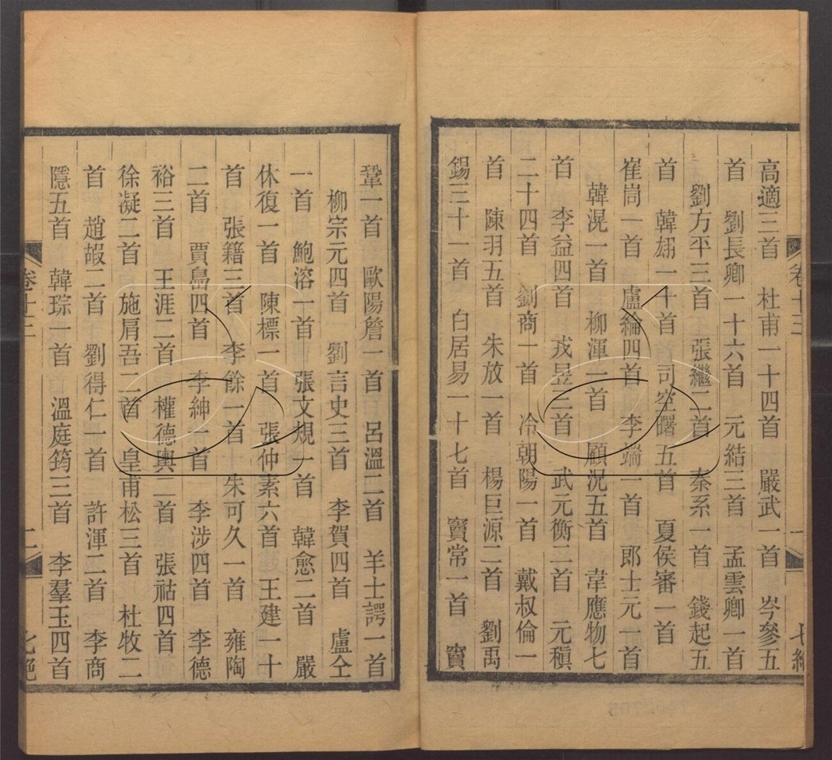 高適三首　杜甫一十四首　嚴武一首　岑參五
首　劉長卿一十六首　元結三首　孟雲卿一首
劉方平三首　張繼二首　秦系一首　錢起五
首　韓翃一十首　司空曙五首　夏侯審一首
崔峝一首　盧綸四首　李端一首　郎士元一首
韓滉一首　柳渾一首　顧況五首　韋應物七
首　李益四首　戎昱三首　武元衡二首　元稹
二十四首　劉商一首　冷朝陽一首　戴叔倫一
首　陳羽五首　朱放一首　楊巨源二首　劉禹
錫三十一首　白居易一十七首　竇常一首　竇
卷十三　一　七絕
鞏一首　歐陽詹一首　呂溫二首　羊士諤一首
柳宗元四首　劉言史三首　李賀四首　盧仝
一首　鮑溶一首　張文規一首　韓愈二首　嚴
休復一首　陳標一首　張仲素六首　王建一十
首　張籍三首　李餘一首　朱可久一首　雍陶
二首　賈島四首　李紳一首　李涉四首　李德
裕三首　王涯二首　權德輿二首　張祜四首
徐凝二首　施肩吾二首　皇甫松三首　杜牧二
首　趙嘏二首　劉得仁一首　許渾二首　李商
隱五首　韓琮一首　溫庭筠三首　李羣玉四首
卷十三　二　七絕